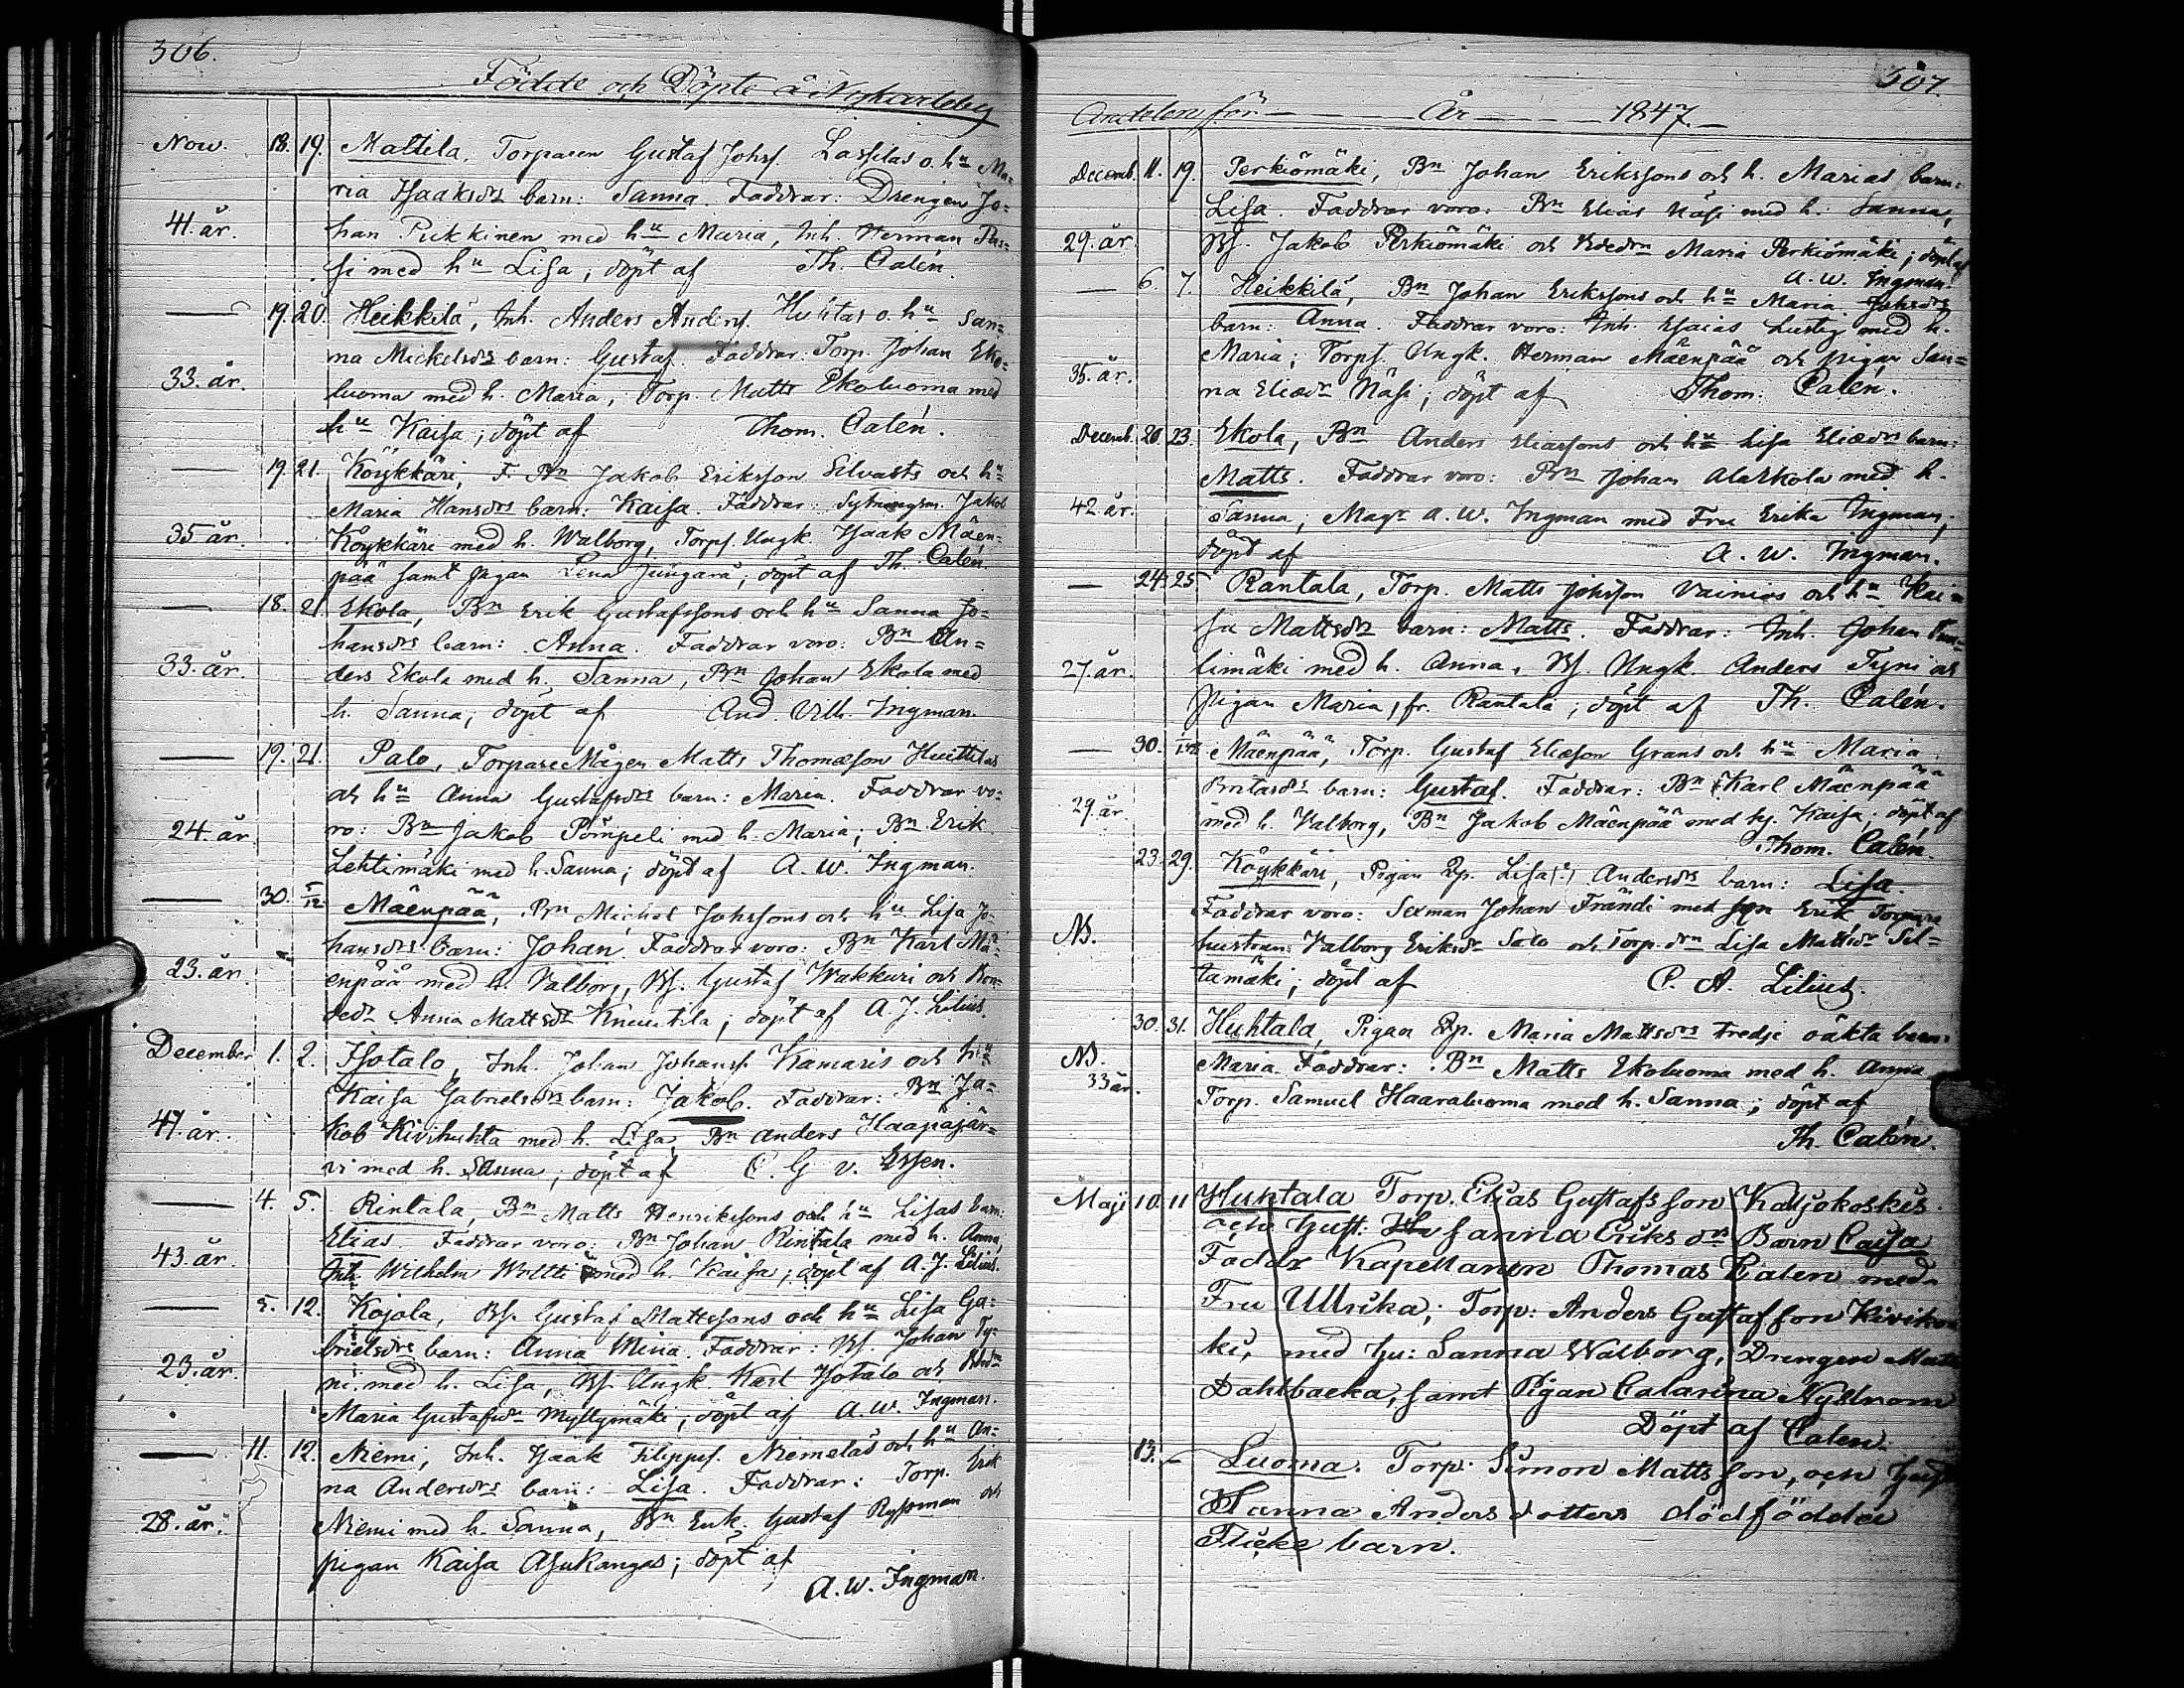 306.
Födde och Döpte å Nykarleby
Nov. 18. 19. Mattila, Torparen Gustaf Johsf. Lassilas o. hu Ma=
ria Isaksdrs barn: Sanna. Faddrar: Drengen Jo=
41. år. han Pukkinen med hu Maria, Inh. Herman
si med hu Lisa; döpt af Th. Calén.
— 19. 20. Heikkilä, Inh. Anders Andersf. Huhtas o. hu San=
na Mickelsdrs barn: Gustaf. Faddrar: Torp. Johan Eko=
33. år. luoma med h. Maria, Torp. Matts Ekoluoma med
hu Kaisa; döpt af Thom. Calén.
— 19. 21. Köykkäri, F. Bn Jakob Eriksson Silvasts och hu
Maria Hansdrs barn: Kaisa. Faddrar: Jakob
35 år. Köykkäri med h. Walborg, Torps. Ungk. Isaak Mäen=
pää samt pigan Lena Jungarå; döpt af Th. Calén
— 18. 21. Ekola, Bn Erik Gustafssons och hu Sanna Jo=
hansdrs barn: Anna. Faddrar voro: Bn An=
33. år. ders Ekola med h. Sanna, Bn Johan Ekola med
h. Sanna; döpt af And. Vilh. Ingman.
— 19. 21. Palo, TorpareMågen Matts Thomæson Huittilas
och hu Anna Gustafsdrs barn: Maria. Faddrar vo=
24. år ro: Bn Jakob Pömpeli med h. Maria; Bn Erik
Lehtimäki med h. Sanna; döpt af A. W. Ingman.
— 30. 5/12 Mäenpää, Bn Michel Johssons och hu Lisa Jo=
hansdrs barn: Johan. Faddrar voro: Bn Karl Mä=
23. år. enpää med h. Valborg, Bs. Gustaf Wakkuri och Bon=
dedr Anna Mattsdr Knuutila; döpt af A. J. Lilius.
December 1. 2. Isotalo, Inh. Johan Johansf. Kamaris och hu
Kaisa Gabrielsdrs barn: Jakob. Faddrar: Bn Ja=
47. år. kob Kivihuhta med h. Lisa, Bn Anders Haapajär=
vi med h. Sanna; döpt af C. G v. Essen.
— 4. 5. Rintala, Bn Matts Henrikssons och hu Lisas barn:
Elias. Faddrar voro: Bn Johan Rintala med h. Anna,
43. år Inh. Wilhelm Woltti med h. Kaisa; döpt af A. J. Lilius.
— 5. 12. Kojola, Bs. Gustaf Mattssons och hu Lisa Ga=
brielsdrs barn: Anna Mina. Faddrar: Bs. Johan Ty=
23. år. ni med h. Lisa, Bs. Ungk. Karl Isotalo och Bdedrn
Maria Gustafsdr Myllymäki; döpt af A. W. Ingman.
— 11. 12. Niemi, Inh. Isaak Filippsf. Niemeläs och hu An=
na Andersdrs barn: Lisa. Faddrar: Torp. Erik
28. år. Niemi med h. Sanna, Bn Enk. Gustaf Ryssman och
pigan Kaisa Asukangas; döpt af
A. W. Ingman.
307.
Andelen för — År — 1847. —
Decemb. 11. 19. Perkiömäki, Bn Johan Erikssons och h. Marias barn:
Lisa. Faddrar voro: Bn Elias Näsi med h. Sanna,
29. år. Bs. Jakob Perkiömäki och Bdedrn Maria Perkiömäki; döpt af
A. W. Ingman.
— 6. 7. Heikkilä, Bn Johan Erikssons och hu Maria Johsdrs
barn: Anna. Faddrar voro: Inh. Esaias Lustig med h.
35. år. Maria; Torps. Ungk. Herman Mäenpää och pigan San=
na Eliædr Näsi; döpt af Thom: Calén.
Decemb. 20. 23. Ekola, Bn Anders Eliassons och hu Lisa Eliædrs barn:
Matts. Faddrar voro: Bn Johan AlaEkola med h.
42. år. Sanna; Magr A. W. Ingman med Fru Erika Ingman;
döpt af A. W. Ingman.
— 24. 25 Rantala, Torp. Matts Johsson Vainios och hu Kai=
sa Mattsdrs barn: Matts. Faddrar: Inh. Johan
27. år. limäki med h. Anna, Bs. Ungk. Anders Tyni och
pigan Maria, fr. Rantala; döpt af Th. Calén.
— 30. Mäenpää, Torp. Gustaf Eliæson Grans och hu Maria
barn: Gustaf. Faddrar: Bn Karl Mäenpää
29. år. med h. Valborg, Bn Jakob Mäenpää med hj. Kaisa; döpt af
Thom. Calén.
23. 29. Köykkäri, Pigan Qp. Lisa Andersdrs barn: Lisa.
Faddrar voro: Sexman Johan Frändi med son Erik, Torpare
NB. hustrun Valborg Eriksdr Salo och Torp.drn Lisa Mattsdr Sil=
tamäki; döpt af C. A. Lilius.
30. 31. Huhtala, Pigan Qp. Maria Mattsdrs tredje oäkta barn:
NB. Maria. Faddrar: Bn Matts Ekoluoma med h. Anna
33 år. Torp. Samuel Haaraluoma med h. Sanna; döpt af
Th. Calén.
Maji 10. 11 Huhtala Torp. Elias Gustafsson Kaljokoskis
och hust. Sanna Eriks dr Barn Caisa
Faddr Kapellanen Thomas Calen med
Fru Ullrika; Torp: Anders Gustafson
ki, med hu: Sanna Walborg; Drengen
Dahlbacka, samt Pigan Catarina Nystrom
Döpt af Calen.
13. — Luoma. Torp. Simon Mattsson, och
Sanna Anders dotters dödfödda
Flicke barn.